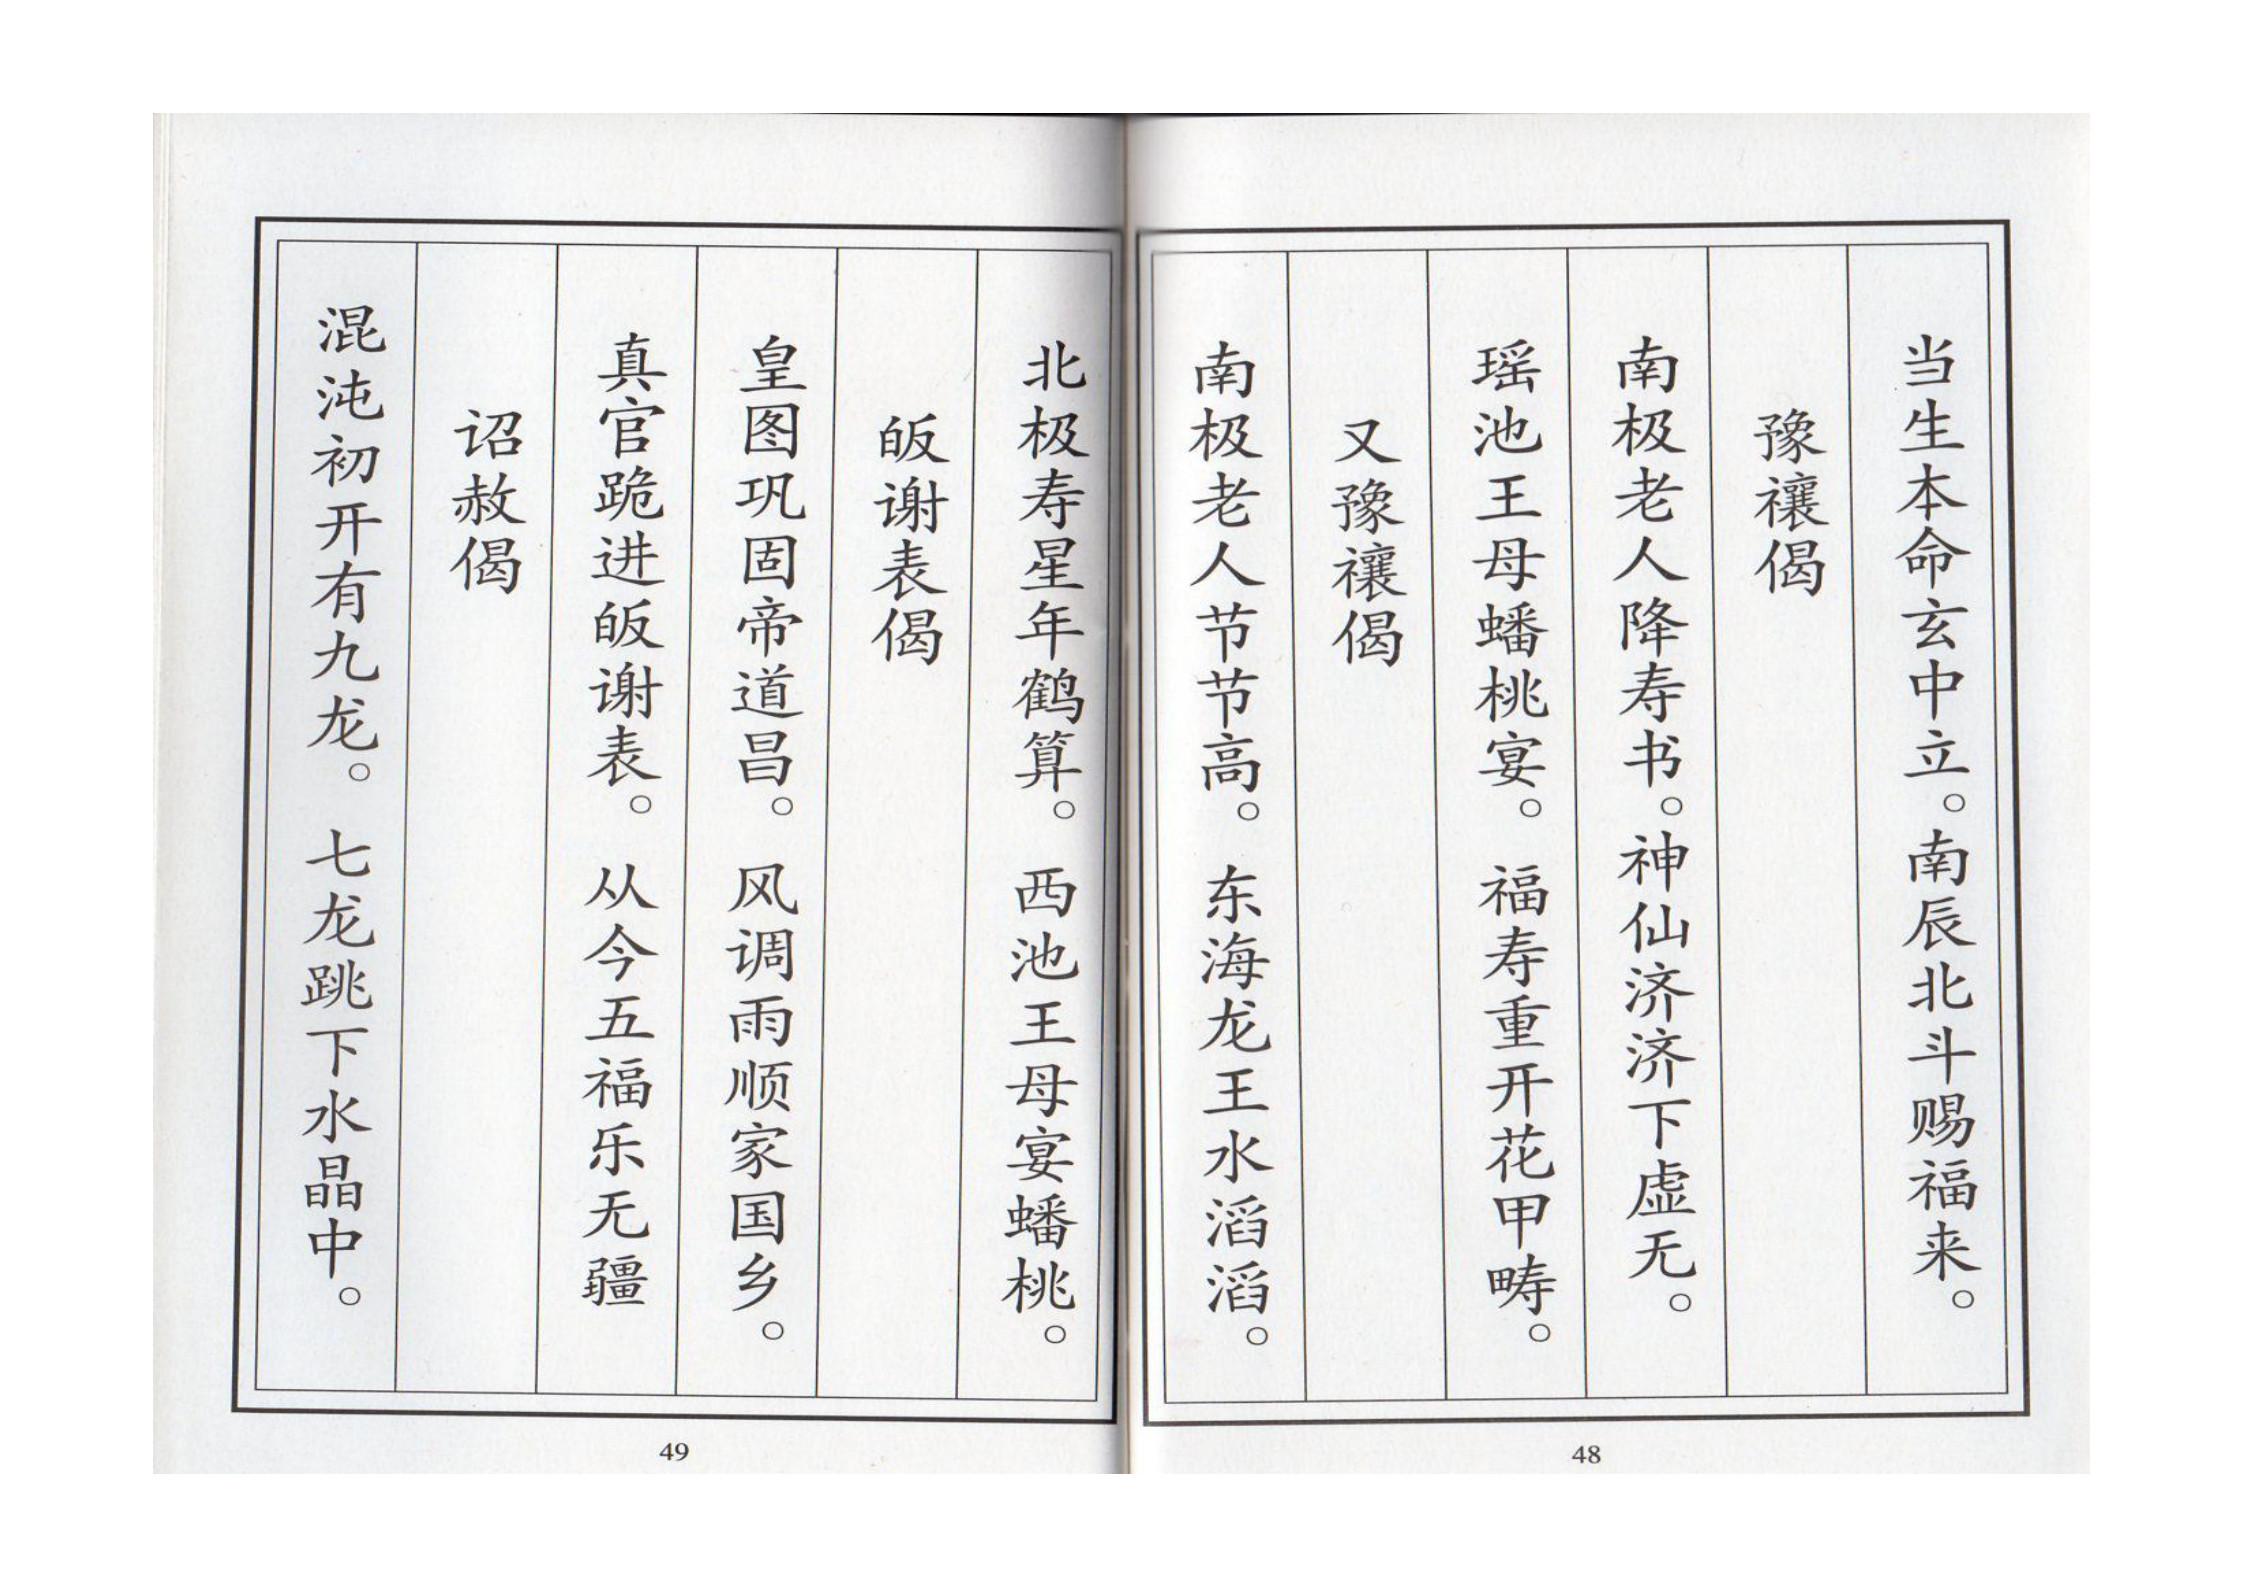 当生本命玄中立。南辰北斗赐福来。
豫禳偈
南极老人降寿书。神仙济济下虚无。
瑶池王母蟠桃宴。福寿重开花甲畴。
又豫禳偈
南极老人节节高。东海龙王水滔滔。
48
北极寿星年鹤算。西池王母宴蟠桃。
皈谢表偈
皇图巩固帝道昌。风调雨顺家国乡。
真官跪进皈谢表。从今五福乐无疆
诏赦偈
混沌初开有九龙。七龙跳下水晶中。
49